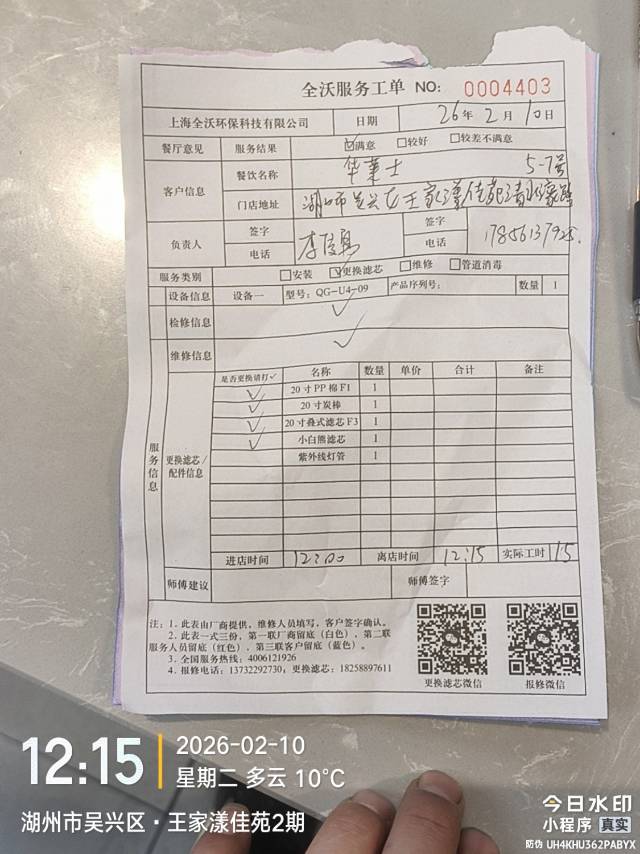 全沃服务工单 NO: 0004403
上海全沃环保科技有限公司 日期 26年2月10日
餐厅意见 服务结果 ☑满意 □较好 □较差不满意
客户信息 餐饮名称 华莱士 5-7号
门店地址 湖州市吴兴区王家漾佳苑
负责人 签字 签字
电话 电话 17856137925.
服务类别 □安装 ☑更换滤芯 □维修 □管道消毒
设备信息 设备一 型号: QG-U4-09 产品序列号: 数量 1
检修信息 ✓
维修信息 ✓
服务信息
更换滤芯/配件信息
是否更换请打✓ 名称 数量 单价 合计 备注
✓ 20寸PP棉F1 1
✓ 20寸炭棒 1
✓ 20寸叠式滤芯F3 1
✓ 小白熊滤芯 1
紫外线灯管 1
进店时间 12:00 离店时间 12:15 实际工时 15
师傅建议 师傅签字
注: 1.此表由厂商提供,维修人员填写,客户签字确认。
2.此表一式三份,第一联厂商留底(白色),第二联
服务人员留底(红色),第三联客户留底(蓝色)。
3.全国服务热线: 4006121926
4.报修电话: 13732292730; 更换滤芯: 18258897611
更换滤芯微信 报修微信
12:15 2026-02-10
星期二 多云 10℃
湖州市吴兴区·王家漾佳苑2期
今日水印
小程序 真实
防伪 UH4KHU362PABYX